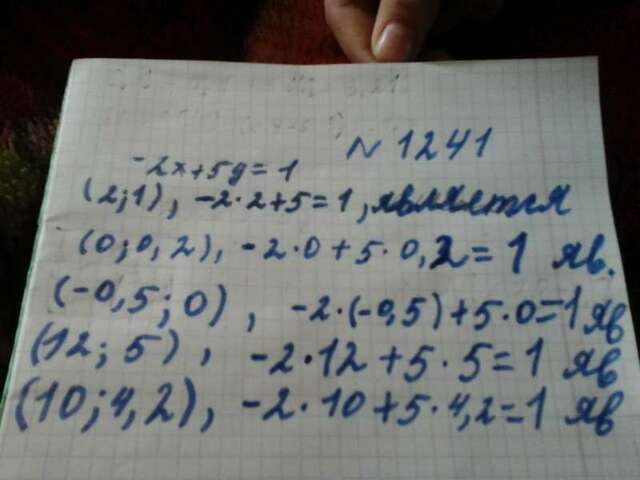 № 1241
-2x+5y=1
(2;1), -2·2+5=1, является
(0;0,2), -2·0+5·0,2=1 яв.
(-0,5;0), -2·(-0,5)+5·0=1 яв
(12;5), -2·12+5·5=1 яв
(10;4,2), -2·10+5·4,2=1 яв